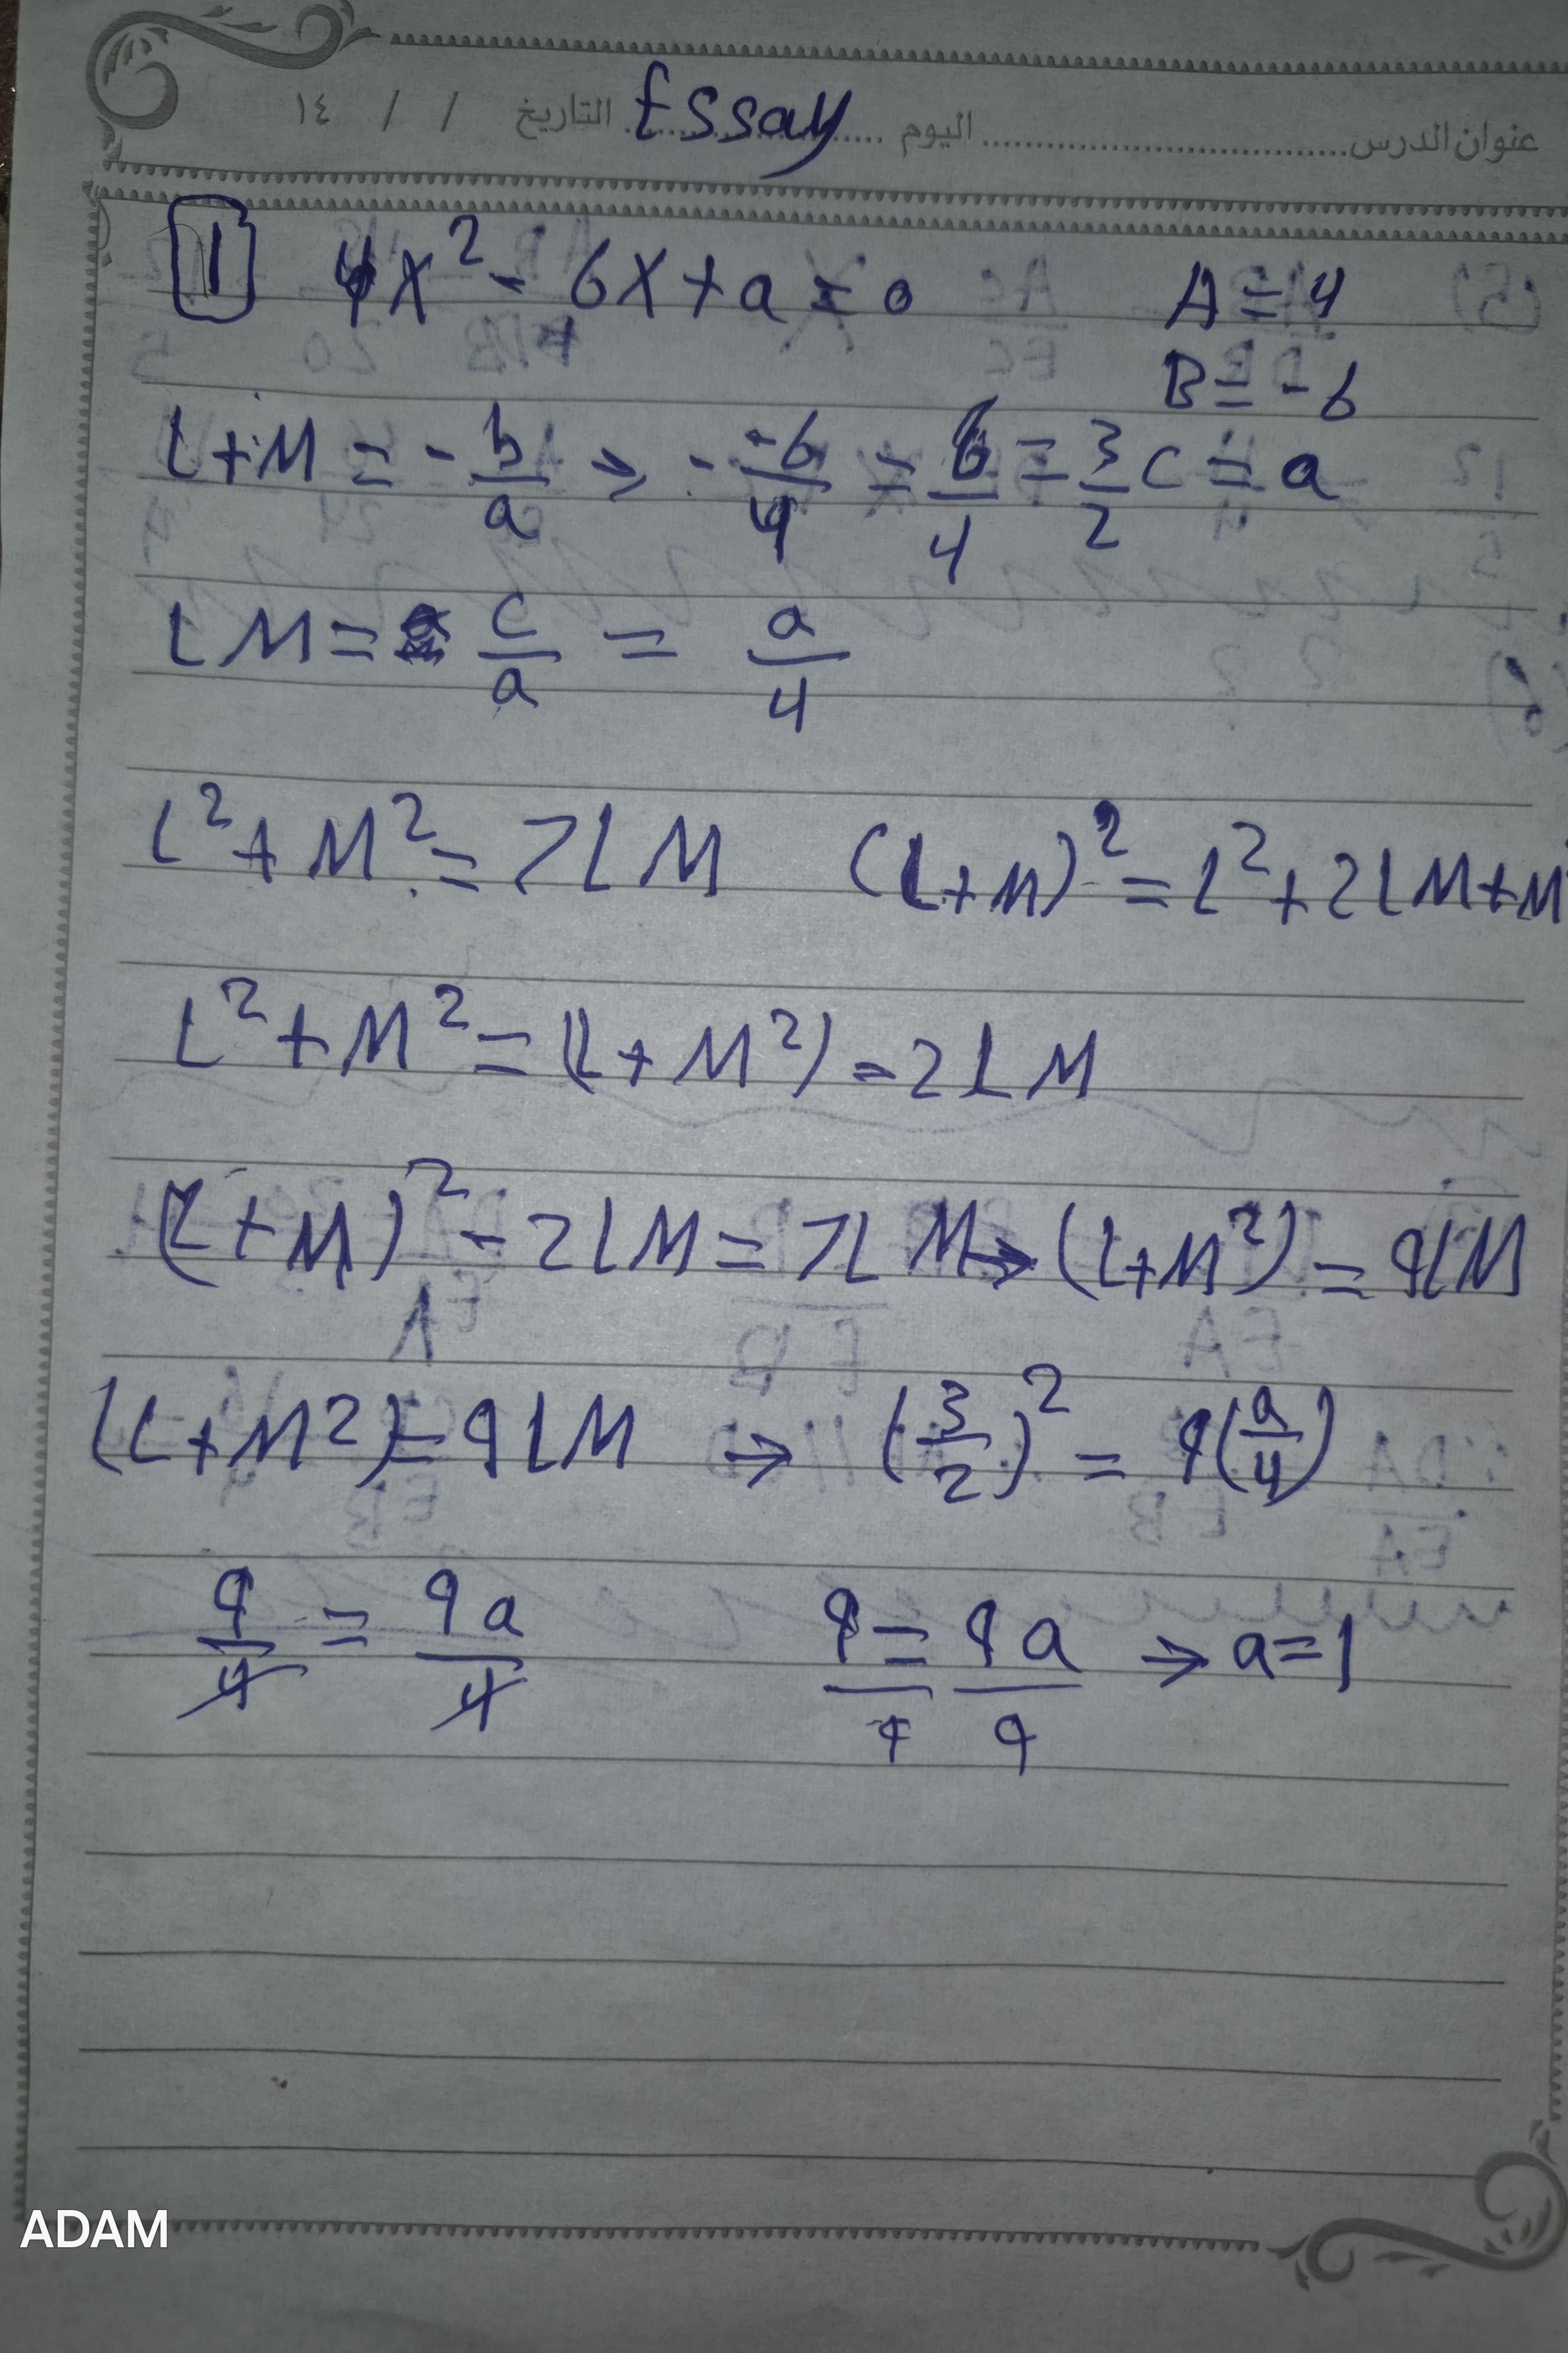 عنوان الدرس اليوم التاريخ / / ١٤
Essay
1 4x² - 6x + a = 0 A = 4
B = -6
L+M = - b/a → - -6/4 = 6/4 = 3/2 C = a
LM = c/a = a/4
L² + M² = 7LM (L+M)² = L² + 2LM + M²
L² + M² = (L + M²) - 2LM
(L + M)² - 2LM = 7LM → (L+M²) = 9LM
(L + M²) = 9LM → (3/2)² = 9(a/4)
9/4 = 9a/4 9/9 = 9a/9 → a = 1
ADAM